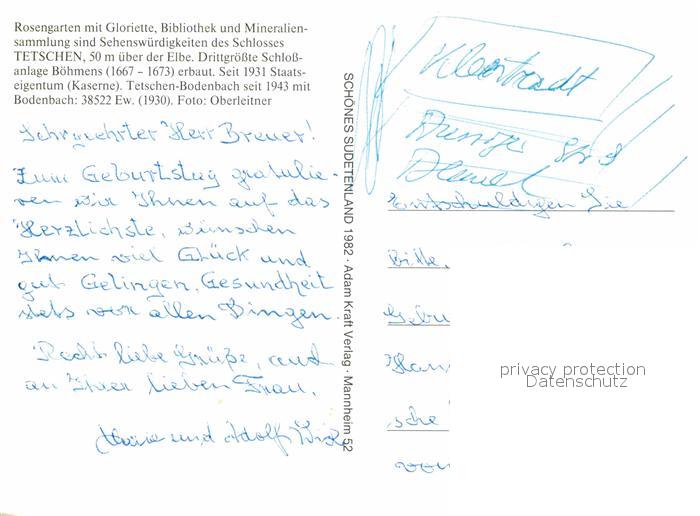 Rosengarten mit Gloriette, Bibliothek und Mineralien-
sammlung sind Sehenswürdigkeiten des Schlosses
TETSCHEN, 50 m über der Elbe. Drittgrößte Schloß-
anlage Böhmens (1667 – 1673) erbaut. Seit 1931 Staats-
eigentum (Kaserne). Tetschen-Bodenbach seit 1943 mit
Bodenbach: 38522 Ew. (1930). Foto: Oberleitner
Sehr geehrter Herr Breuer!
Zum Geburtstag gratulie-
ren wir Ihnen auf das
Herzlichste, wünschen
Ihnen viel Glück und
gut Gelingen, Gesundheit
stets vor allen Dingen.
Recht liebe Grüße, auch
an Ihrer lieben Frau.
Marie und Adolf
SCHÖNES SUDETENLAND 1982 · Adam Kraft Verlag · Mannheim 52
Entschuldigen Sie
Bitte,
Gebu
Han
sche
von
privacy protection
Datenschutz